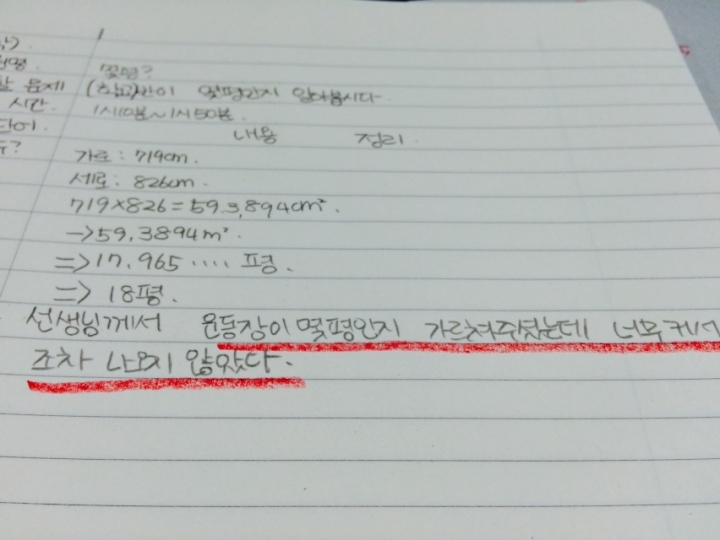 몇평?
할 문제 (학교)반이 몇평인지 알아봅시다.
시간. 1시10분~1시50분.
단어. 내용 정리
가로: 719cm.
세로: 826cm.
719×826=593,894cm².
→59.3894m².
⇒17.965 .... 평.
⇒ 18평.
선생님께서 운동장이 몇평인지 가르쳐주셨는데 너무 커서
조차 나오지 않았다.